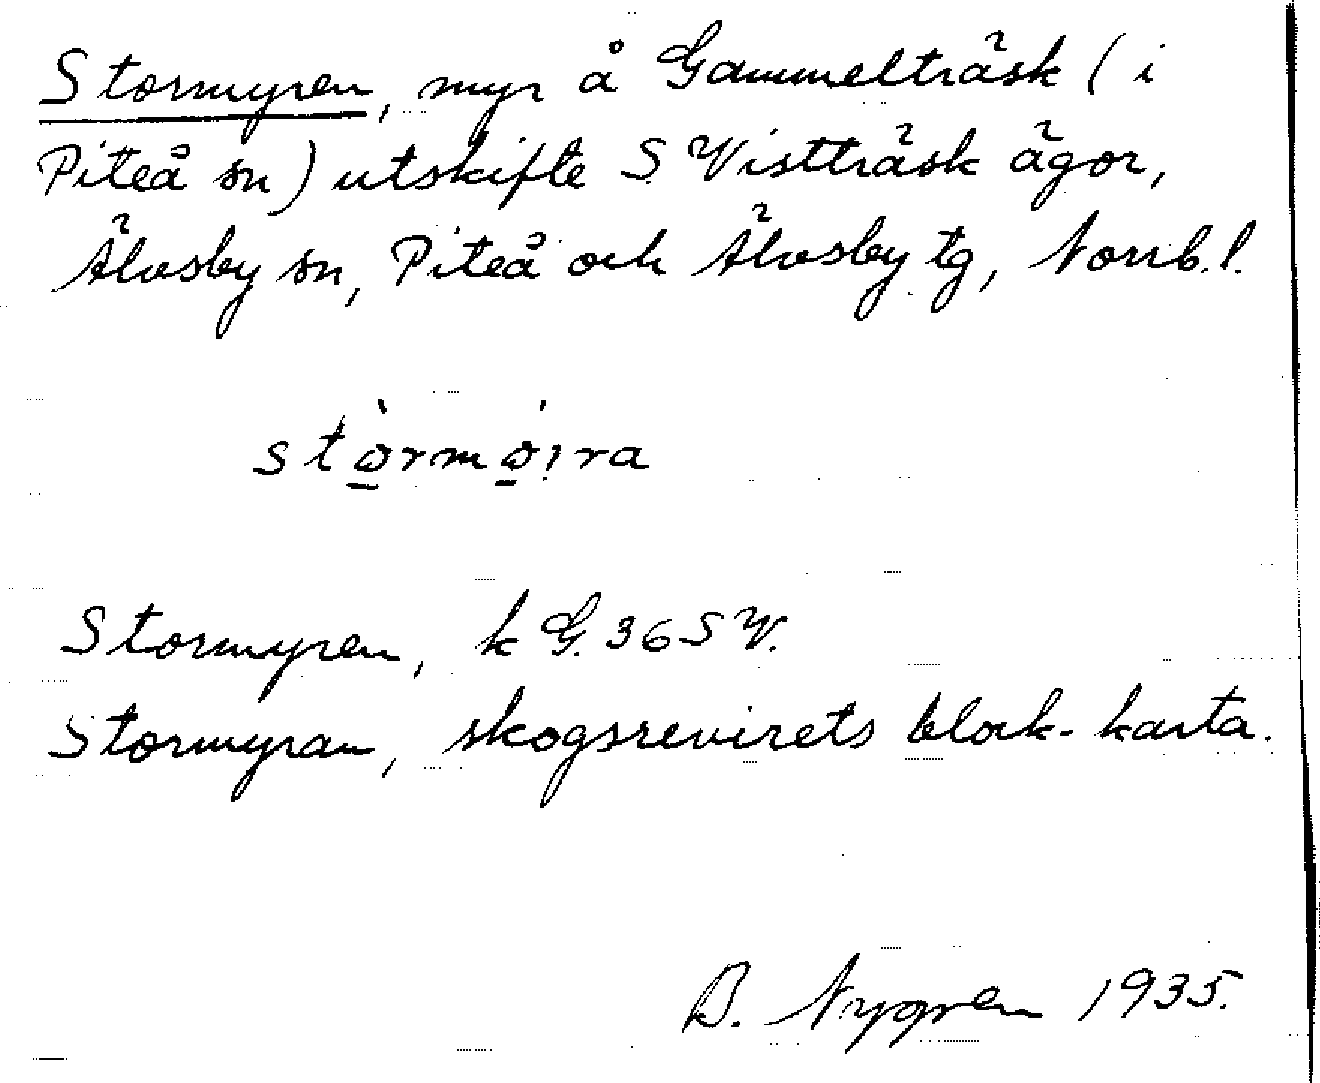 Stormyren, myr å Gammelträsk (i
Piteå sn) utskifte S Vistträsk ägor,
Älvsby sn, Piteå och Älvsby tg, Norrb. l.
stø̠̀rmǿ̠ira
Stormyren, k G. 36 S V.
Stormyran, skogsrevirets block-karta.
B. Nygren 1935.